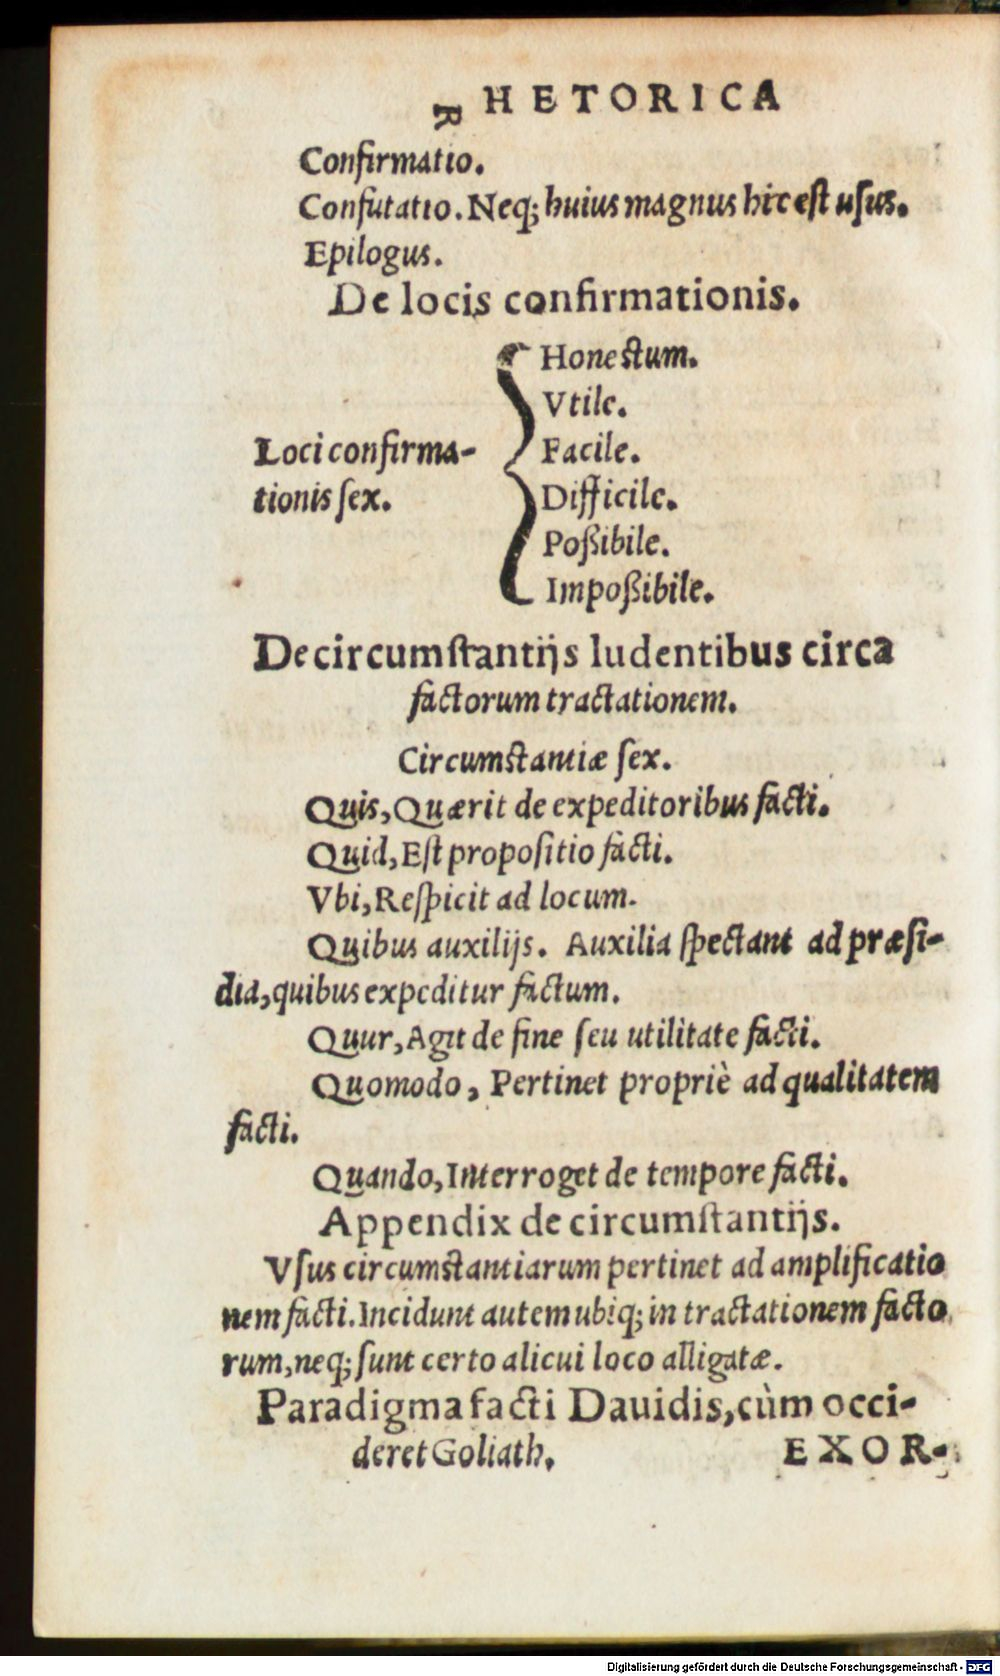 RHETORICA
Confirmatio.
Confutatio. Neq; huius magnus hic est usus.
Epilogus.
De locis confirmationis.
Honestum.
Vtile.
Loci confirma-
tionis sex.
Facile.
Difficile.
Poßibile.
Impoßibile.
De circumstantijs ludentibus circa
factorum tractationem.
Circumstantiæ sex.
Quis, Quærit de expeditoribus facti.
Quid, Est propositio facti.
Vbi, Respicit ad locum.
Quibus auxilijs. Auxilia spectant ad præsi-
dia, quibus expeditur factum.
Quur, Agit de fine seu utilitate facti.
Quomodo, Pertinet propriè ad qualitatem
facti.
Quando, Interroget de tempore facti.
Appendix de circumstantijs.
Vsus circumstantiarum pertinet ad amplificatio
nem facti. Incidunt autem ubiq; in tractationem facto
rum, neq; sunt certo alicui loco alligatæ.
Paradigma facti Dauidis, cùm occi-
deret Goliath.
EXOR-
Digitalisierung gefördert durch die Deutsche Forschungsgemeinschaft - DFG